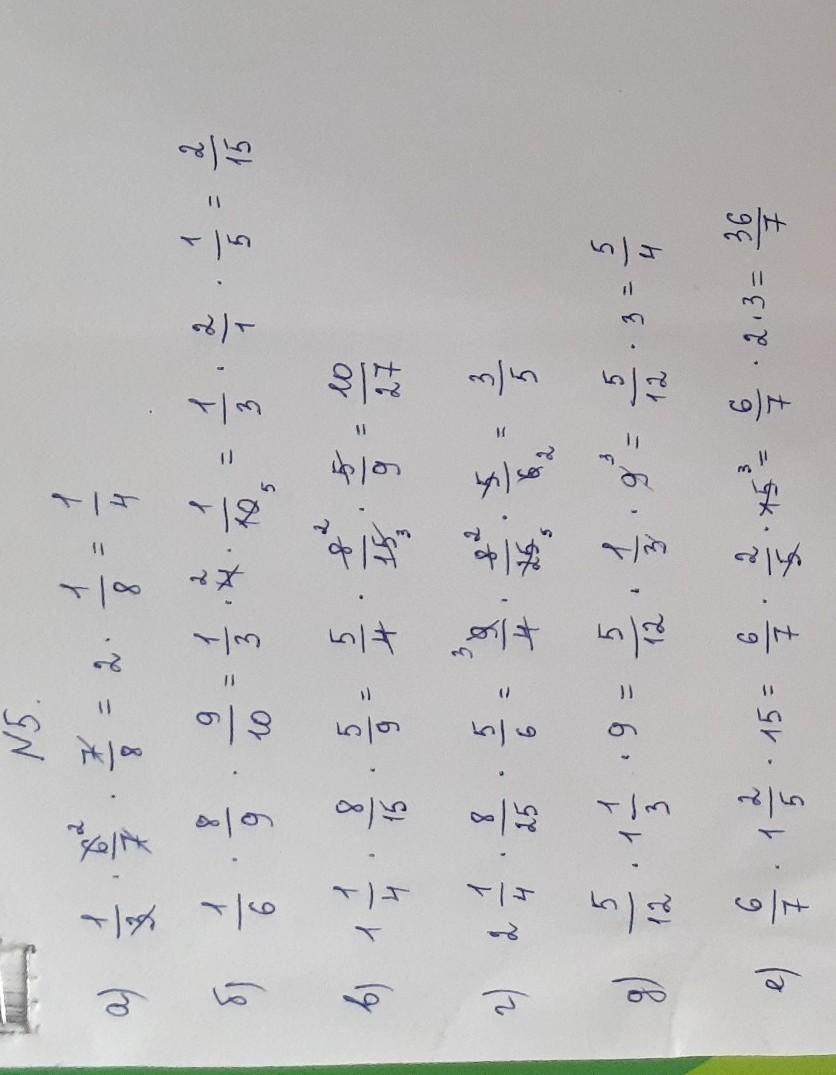 N5.
а) 1/3 · 6²/7 · 7/8 = 2 · 1/8 = 1/4
б) 1/6 · 8/9 · 9/10 = 1/3 · 4² · 1/10₅ = 1/3 · 2/1 · 1/5 = 2/15
в) 1 1/4 · 8/15 · 5/9 = 5/4 · 8²/15₃ · 5/9 = 10/27
г) 2 1/4 · 8/25 · 5/6 = ³9/4 · 8²/25₅ · 5/6₂ = 3/5
д) 5/12 · 1 1/3 · 9 = 5/12 · 1/3 · 9³ = 5/12 · 3 = 5/4
е) 6/7 · 1 2/5 · 15 = 6/7 · 2/5 · 15³ = 6/7 · 2·3 = 36/7